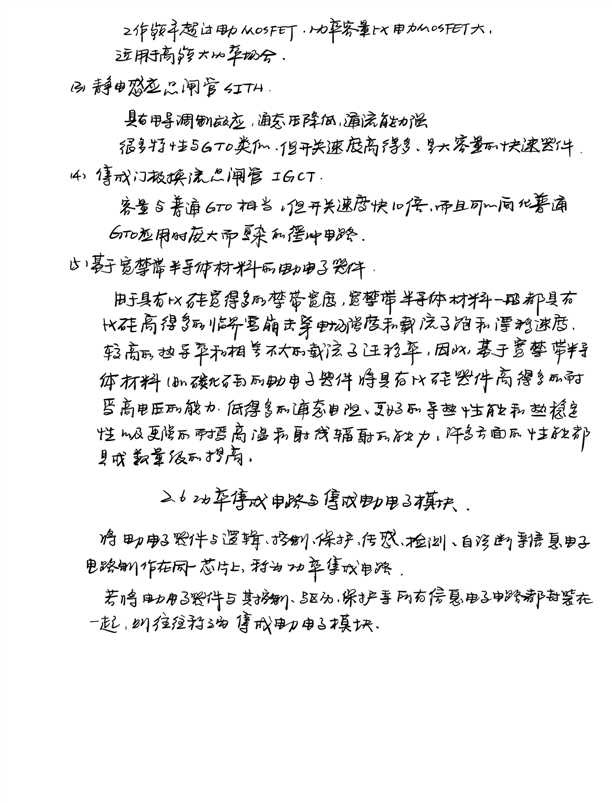 工作频率超过电力MOSFET，功率容量比电力MOSFET大，
适用于高频大功率场合．
(3) 静电感应晶闸管SITH．
具有电导调制效应，通态压降低，通流能力强
很多特性与GTO类似，但开关速度高得多，是大容量的快速器件．
(4) 集成门极换流晶闸管 IGCT．
容量与普通GTO相当，但开关速度快10倍，而且可以简化普通
GTO应用时庞大而复杂的缓冲电路．
(5) 基于宽禁带半导体材料的电力电子器件．
由于具有比硅宽得多的禁带宽度，宽禁带半导体材料一般都具有
比硅高得多的临界雪崩击穿电场强度和载流子饱和漂移速度．
较高的热导率和相差不大的载流子迁移率，因此，基于宽禁带半导
体材料(如碳化硅)的电力电子器件将具有比硅器件高得多的耐
受高电压的能力．低得多的通态电阻、更好的导热性能和热稳定
性以及更强的耐受高温和射线辐射的能力，许多方面的性能都
是成数量级的提高．
2.6 功率集成电路与集成电力电子模块．
将电力电子器件与逻辑、控制、保护、传感、检测、自诊断等信息电子
电路制作在同一芯片上，称为功率集成电路．
若将电力电子器件与其控制、驱动、保护等所有信息电子电路都封装在
一起，则往往称为集成电力电子模块．